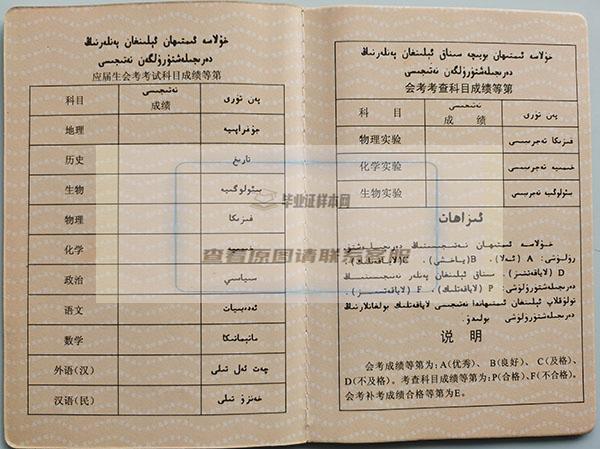 خۇلاسە ئىمتىھان ئېلىنغان پەنلەرنىڭ
دەرىجىلەشتۈرۈلگەن نەتىجىسى
应届生会考考试科目成绩等第
科目 نەتىجىسى 成绩 پەن تۈرى
地理 جۇغراپىيە
历史 تارىخ
生物 بىئولوگىيە
物理 فىزىكا
化学 خىمىيە
政治 سىياسىي
语文 ئەدەبىيات
数学 ماتېماتىكا
外语(汉) چەت ئەل تىلى
汉语(民) خەنزۇ تىلى
خۇلاسە ئىمتىھان بويىچە سىناق ئېلىنغان پەنلەرنىڭ
دەرىجىلەشتۈرۈلگەن نەتىجىسى
会考考查科目成绩等第
科 目 نەتىجىسى 成 绩 پەن تۈرى
物理实验 فىزىكا تەجرىبىسى
化学实验 خىمىيە تەجرىبىسى
生物实验 بىئولوگىيە تەجرىبىسى
ئىزاھات
خۇلاسە ئىمتىھان نەتىجىسىنىڭ دەرىجىلەشتۈ
رۈلۈشى: A (ئەلا)، B (ياخشى)، C (لاياقەتلىك)،
D (لاياقەتسىز). سىناق ئېلىنغان پەنلەر نەتىجىسىنىڭ
دەرىجىلەشتۈرۈلۈشى: P (لاياقەتلىك)، F (لاياقەتسىز).
تولۇقلاپ ئېلىنغان ئىمتىھاندا نەتىجىسى لاياقەتلىك بولغانلارنىڭ
دەرىجىلەشتۈرۈلۈشى E بولىدۇ.
说 明
会考成绩等第为:A(优秀)、B(良好)、C(及格)、
D(不及格)。考查科目成绩等第为:P(合格)、F(不合格)。
会考补考成绩合格等第为E。
毕业证样本网
查看原图请联系客服